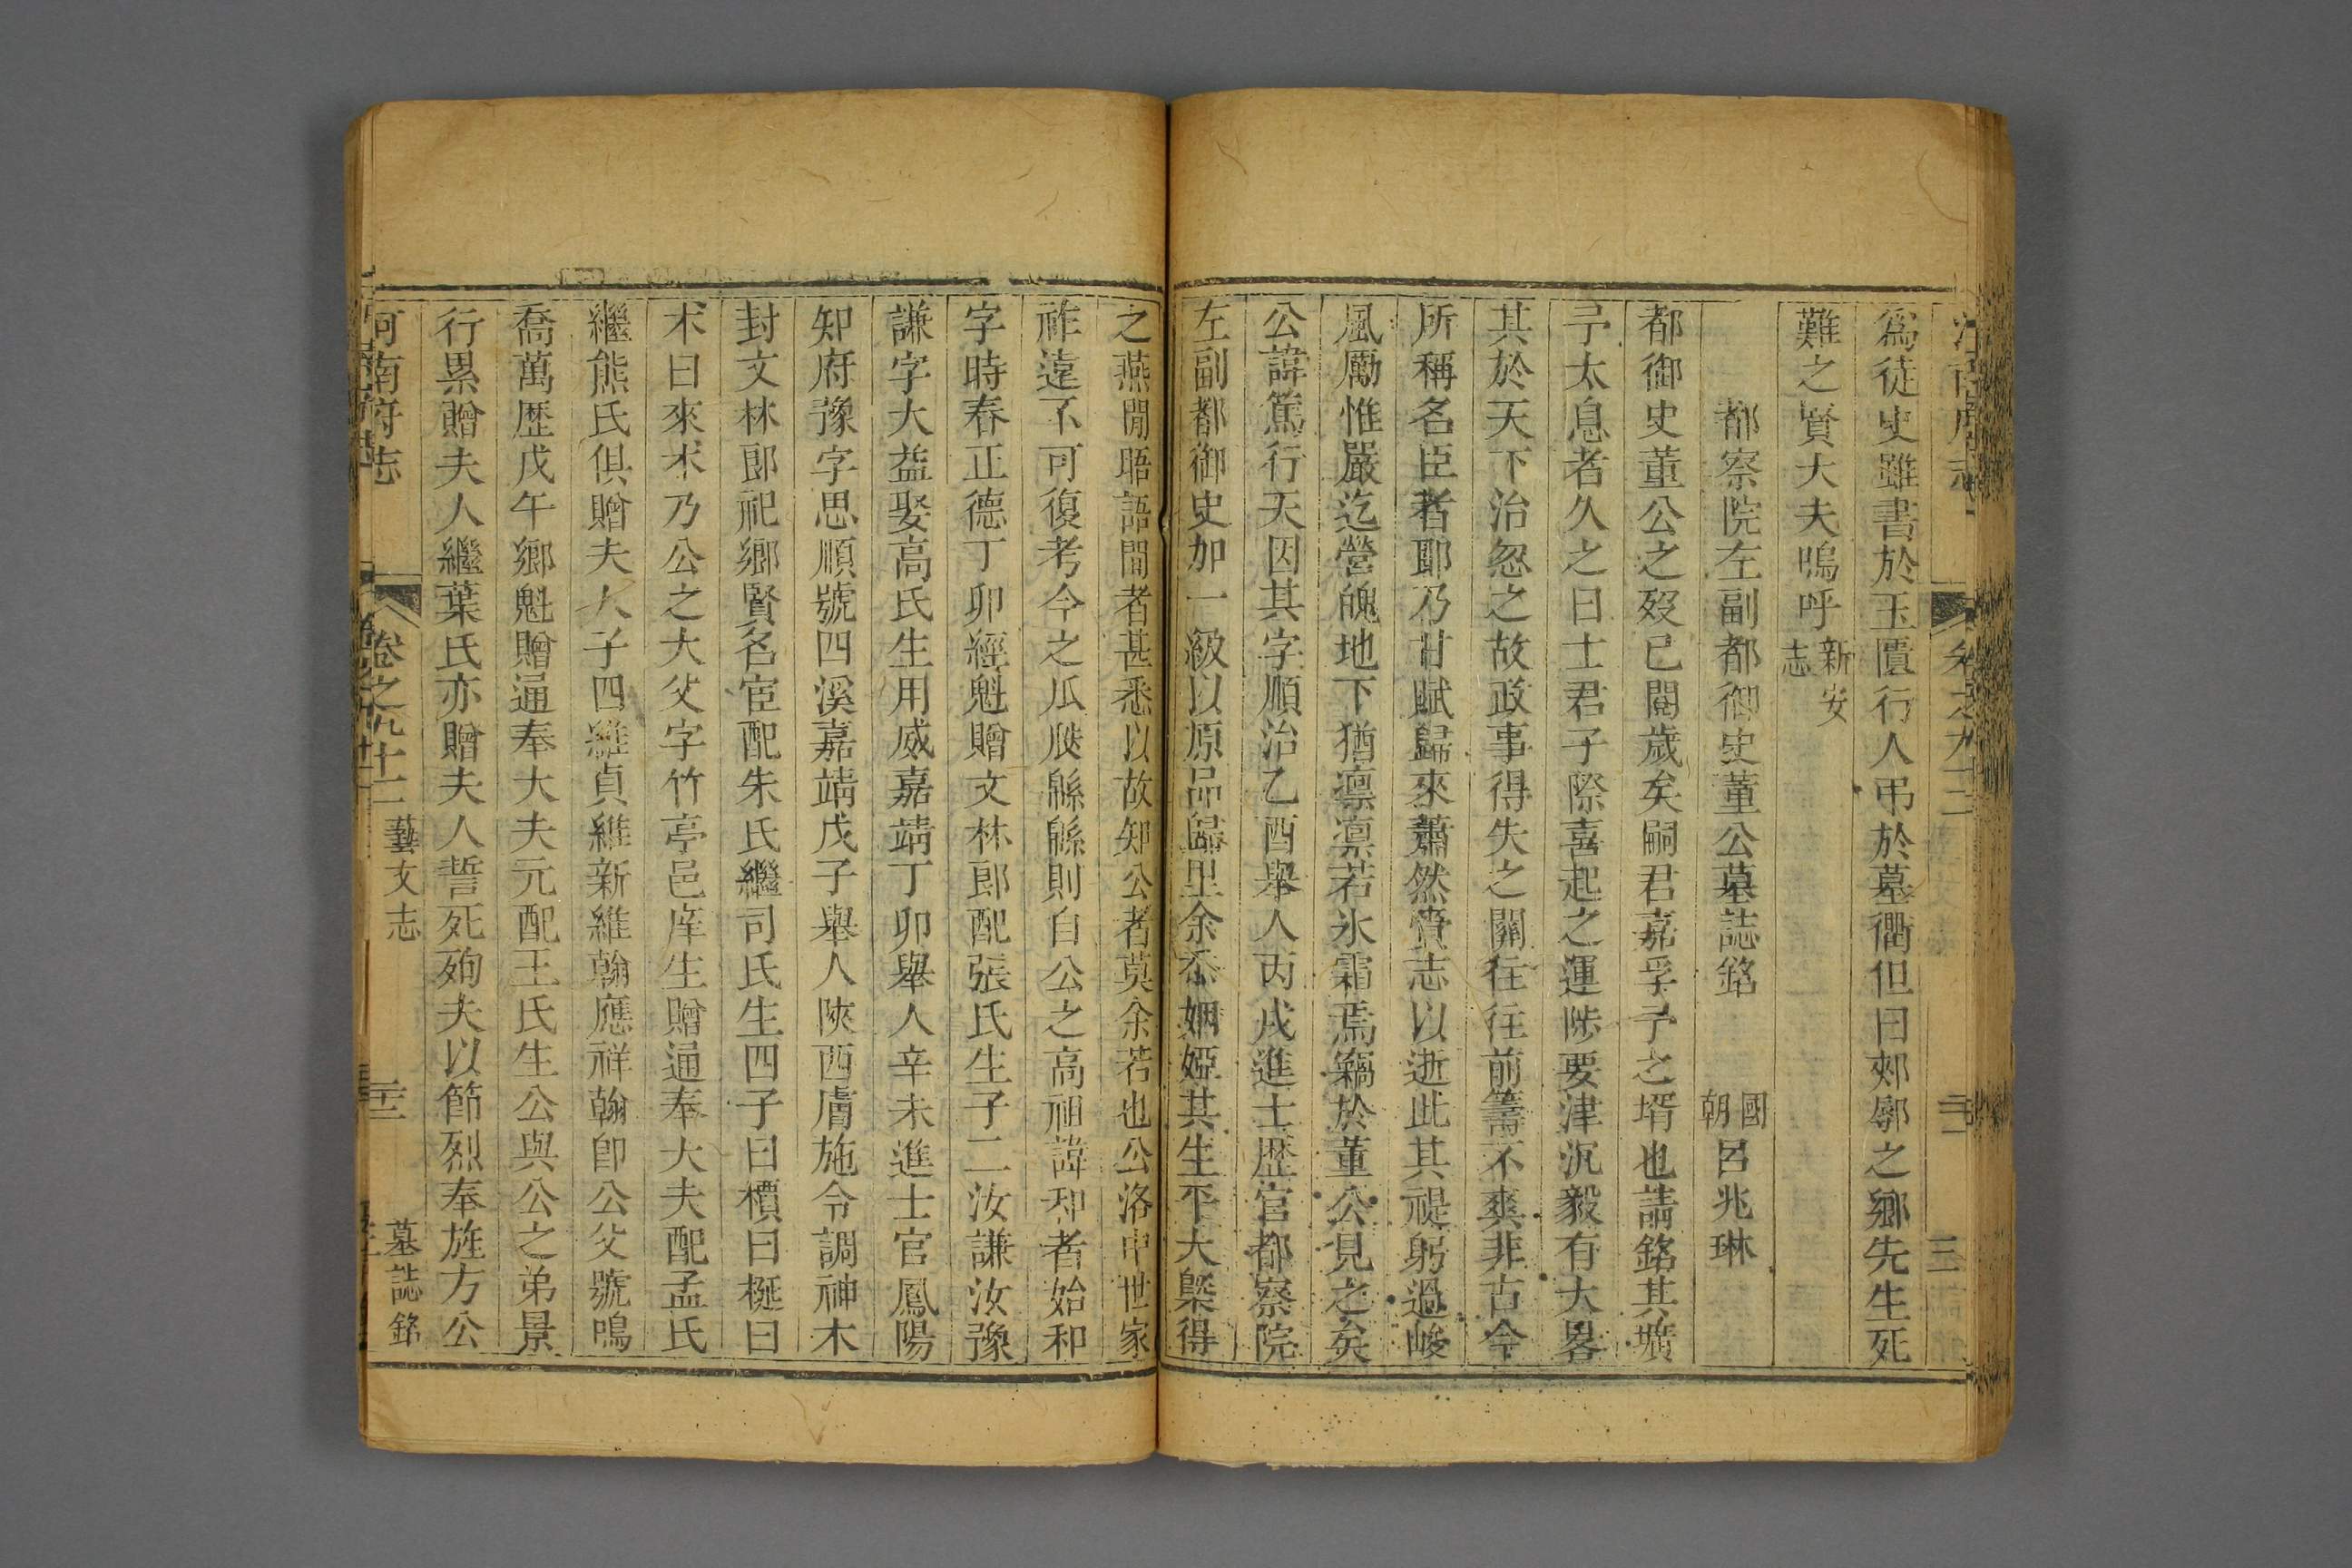 爲徒史雖書於玉匱行人弔於墓衢但曰郟鄏之鄉先生死
難之賢大夫嗚呼新安志
都察院左副都御史董公墓誌銘 國朝呂兆琳
都御史董公之歿已閱歲矣嗣君嘉孚予之壻也請銘其壙
予太息者久之曰士君子際喜起之運陟要津沉毅有大畧
其於天下治忽之故政事得失之關往往前籌不爽非古今
所稱名臣者耶乃甘賦歸來蕭然賫志以逝此其禔躬過峻
風勵惟嚴迄營魄地下猶凛凛若氷霜焉竊於董公見之矣
公諱篤行天因其字順治乙酉舉人丙戌進士歷官都察院
左副都御史加一級以原品歸里余忝姻婭其生平大槩得
之燕閒晤語間者甚悉以故知公者莫余若也公洛中世家
祚遠不可復考今之瓜瓞緜緜則自公之高祖諱和者始和
字時春正德丁卯經魁贈文林郎配張氏生子二汝謙汝豫
謙字大益娶高氏生用威嘉靖丁卯舉人辛未進士官鳳陽
知府豫字思順號四溪嘉靖戊子舉人陝西膚施令調神木
封文林郎祀鄉賢名宦配朱氏繼司氏生四子曰檟曰梴曰
朮曰來朮乃公之大父字竹亭邑庠生贈通奉大夫配孟氏
繼熊氏俱贈夫人子四維貞維新維翰應祥翰卽公父號鳴
喬萬歷戊午鄉魁贈通奉大夫元配王氏生公與公之弟景
行累贈夫人繼葉氏亦贈夫人誓死殉夫以節烈奉旌方公
河南府志 卷之九十二 藝文志 墓誌銘